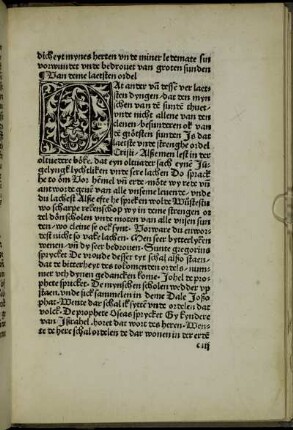 dicheyt mynes herten vnde miner ledemate sin
vorwundet vnde bedrouet van groten sunden
¶ Van deme laetsten ordel
DAt ander vā dessē ver laets
sten dyngen, dat den myn
schen van dē sundē thuet,
vnde nicht allene van den
clenen, besunderen ok van
dē grotesten sunden Is dat
laetste vnde strenghe ordel
Cristi, Alsemen lest in der
oltuedere boke, dat eyn oltuader sach eynē Jü
gelyngk lychtliken vnde sere lachen Do sprack
he to om Vor hēmel vn̄ erde mote wy rede vnde
antworde geuē van alle vnseme leuende, vnde
du lachest Alse efte he spreken wolde Wustestu
wo scharpe rekenschop wy in deme strengen or
del don scholen vnde moten van alle vnsen sun
den, wo cleine se ock synt, Vorware du enwor
dest nicht so vake lachen, Men seer bytterlyken
wenen, vn̄ dy seer bedrouen, Sunte gregorius
sprycket De vroude desser tyt schal also staen,
dat de bitterheyt des tokomenden ordels, num
mer vth dynen gedancken kome, Johel de pro
phete spricket De mynschen scholen wedder vp
staen, vnde sick sammelen in deme Dale Josa
phat, Wente dar schal ik sytte vnde ordelen dat
volck, De prophete Oseas sprycket Gy kyndere
van Israhel, horet dat wort des heren, Wen
te de here schal ordelen de dar wonen in der erdē
c iij